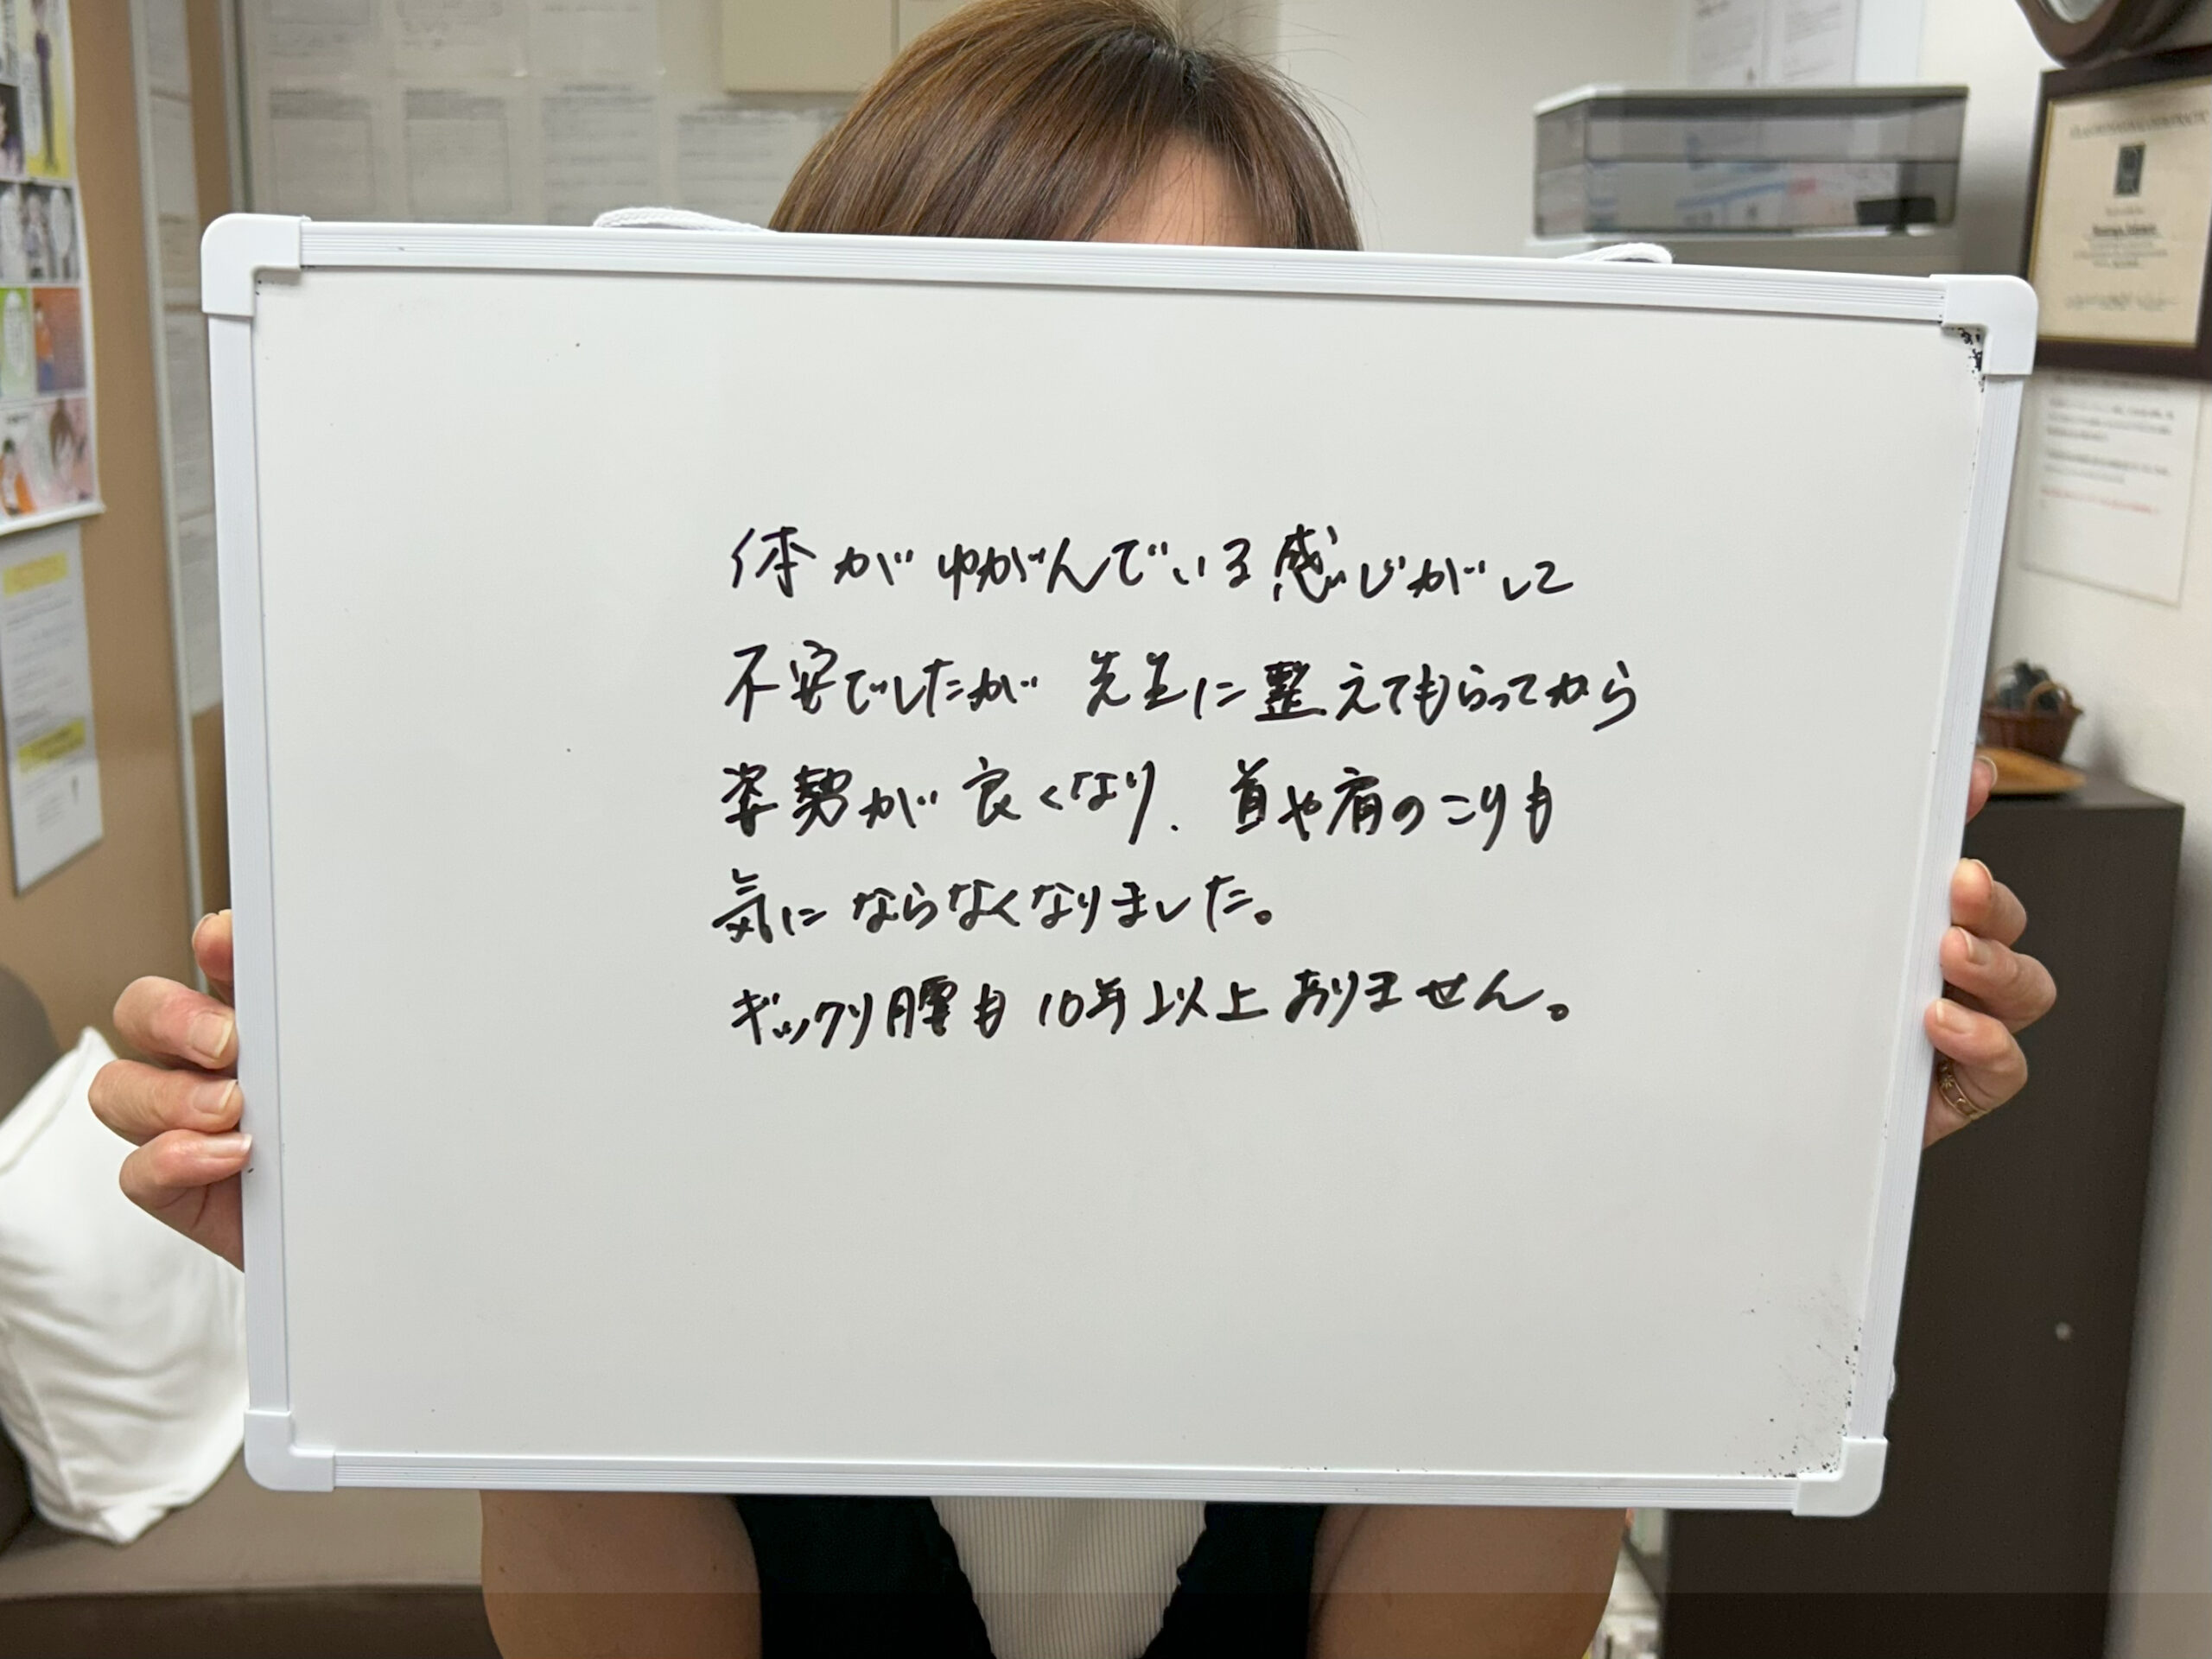 体がゆがんでいる感じがして
不安でしたが 先生に整えてもらってから
姿勢が良くなり、首や肩のこりも
気にならなくなりました。
ギックリ腰も10年以上ありません。